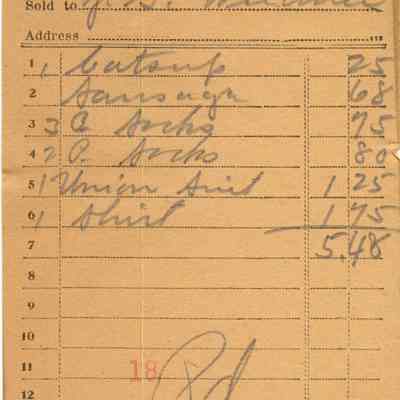 Sold to J. G.
Address
1 1 Catsup 25
2 Sausage 68
3 3 C Socks 75
4 2 P. Socks 80
5 1 Union Suit 1 25
6 1 Shirt 1 75
7 5.48
8
9
10
11 18
12 Pd